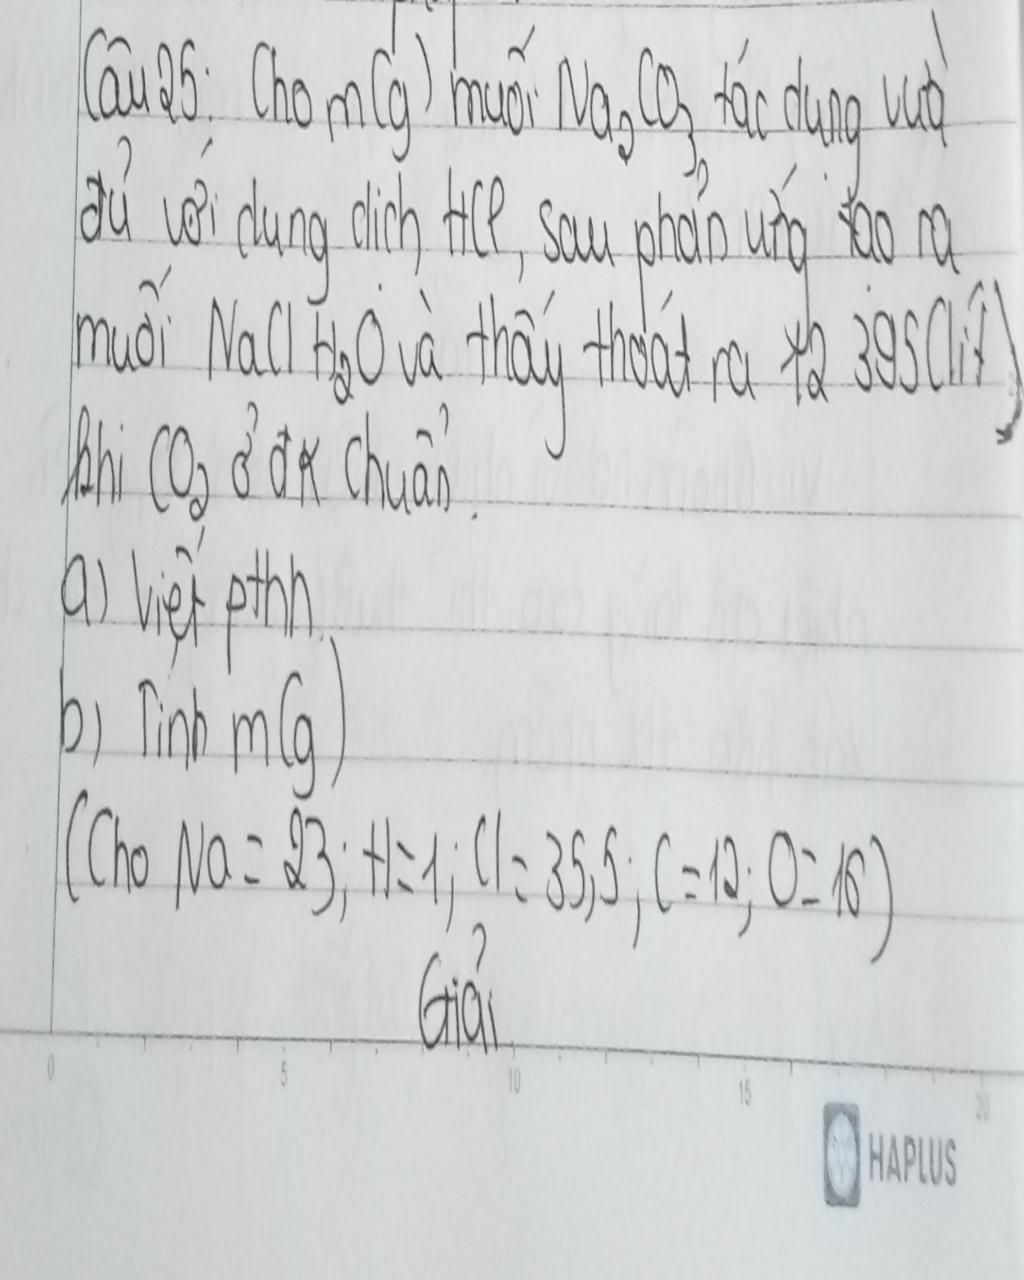 Câu 25: Cho m(g) muối Na2CO3 tác dụng vừa
đủ với dung dịch HCl, sau phản ứng tạo ra
muối NaCl H2O và thấy thoát ra 12 395 (lít)
khí CO2 ở đk chuẩn.
a) Viết pthh.
b) Tính m(g)
(Cho Na = 23; H = 1; Cl = 35,5; C = 12; O = 16)
Giải
0 5 10 15 20
HAPLUS